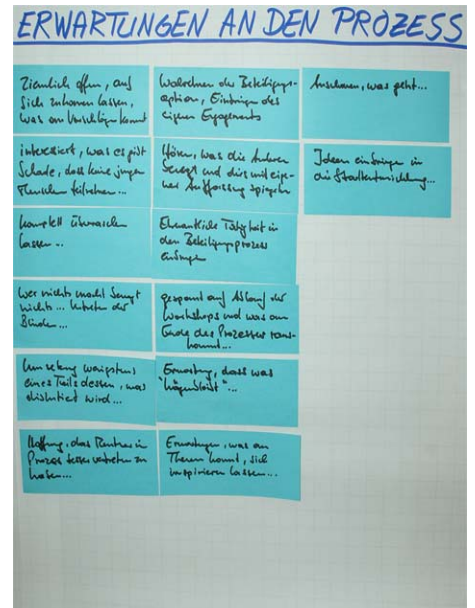 ERWARTUNGEN AN DEN PROZESS
Ziemlich offen, auf
sich zukommen lassen,
was an Vorschlägen kommt
interessiert, was es gibt
Schade, dass keine jungen
Menschen teilnehmen...
komplett überraschen
lassen...
wer nichts macht
nichts... der
Umsetzung wenigstens
eines Teils dessen, was
diskutiert wird...
Hoffnung, das
Prozess besser vertreten zu
haben...
Wahrnehmen der Beteiligungs-
option, Einbringen des
eigenen Engagements
Hören, was die Anderen
und dies mit eige-
ner Auffassung spiegeln
Ehrenamtliche Tätigkeit in
den Beteiligungsprozess
einbringen
gespannt auf Ablauf der
Workshops und was am
Ende des Prozesses raus-
kommt...
Erwartung, dass was
"hängenbleibt"...
Erwartungen, was an
Themen kommt, sich
inspirieren lassen...
Anschauen, was geht...
Ideen einbringen in
die Stadtentwicklung...